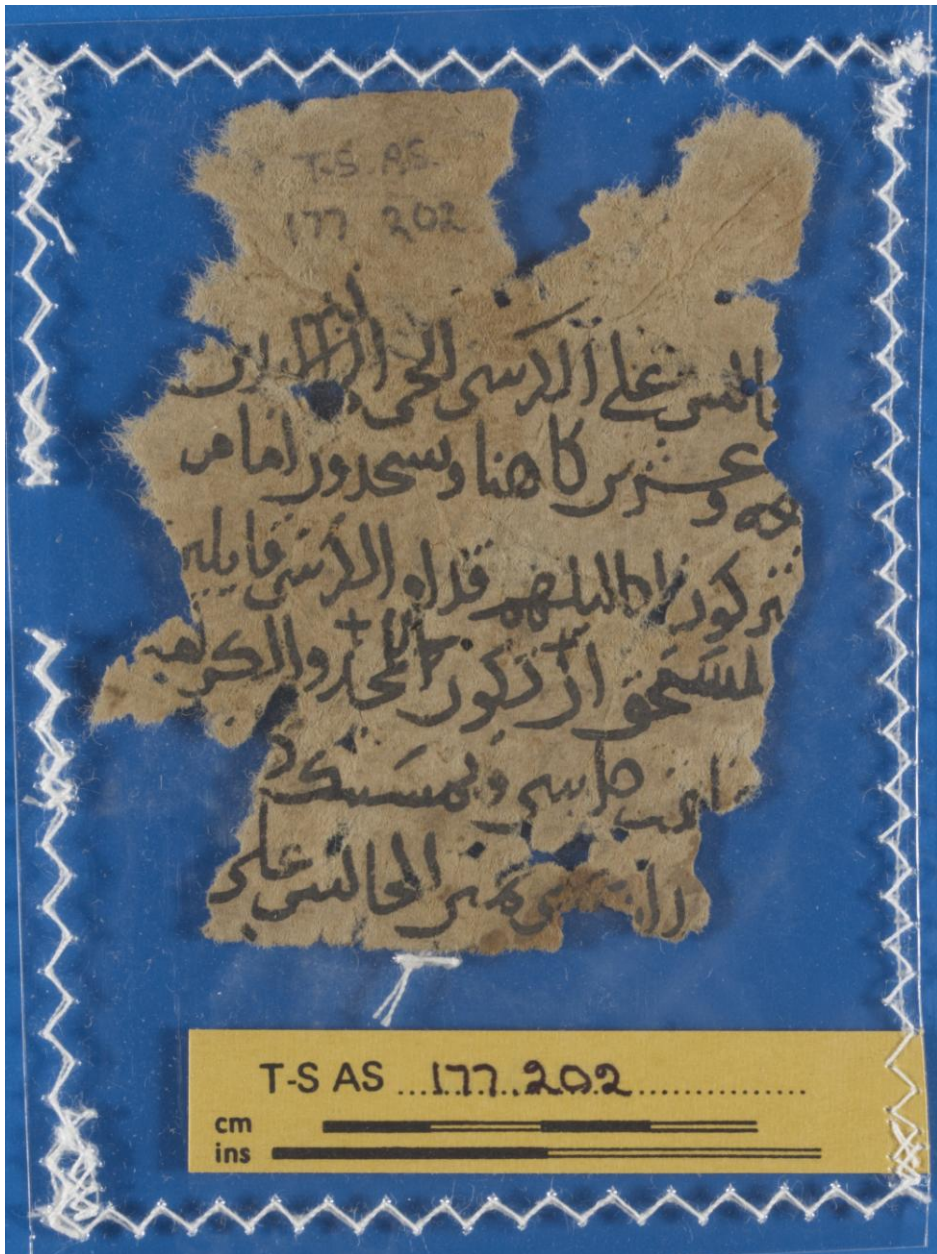 T-S. A.S.
177 202
الجالس على الكرسي الحي
وعشرين كاهنا ويسجدون امام
يتركون اكاليلهم قدام الكرسي قايلين
مستحق ان تكون لك المجد والكرامه
كل شي وبمسيتك
يمين الجالس على
T-S AS 177.202
cm
ins